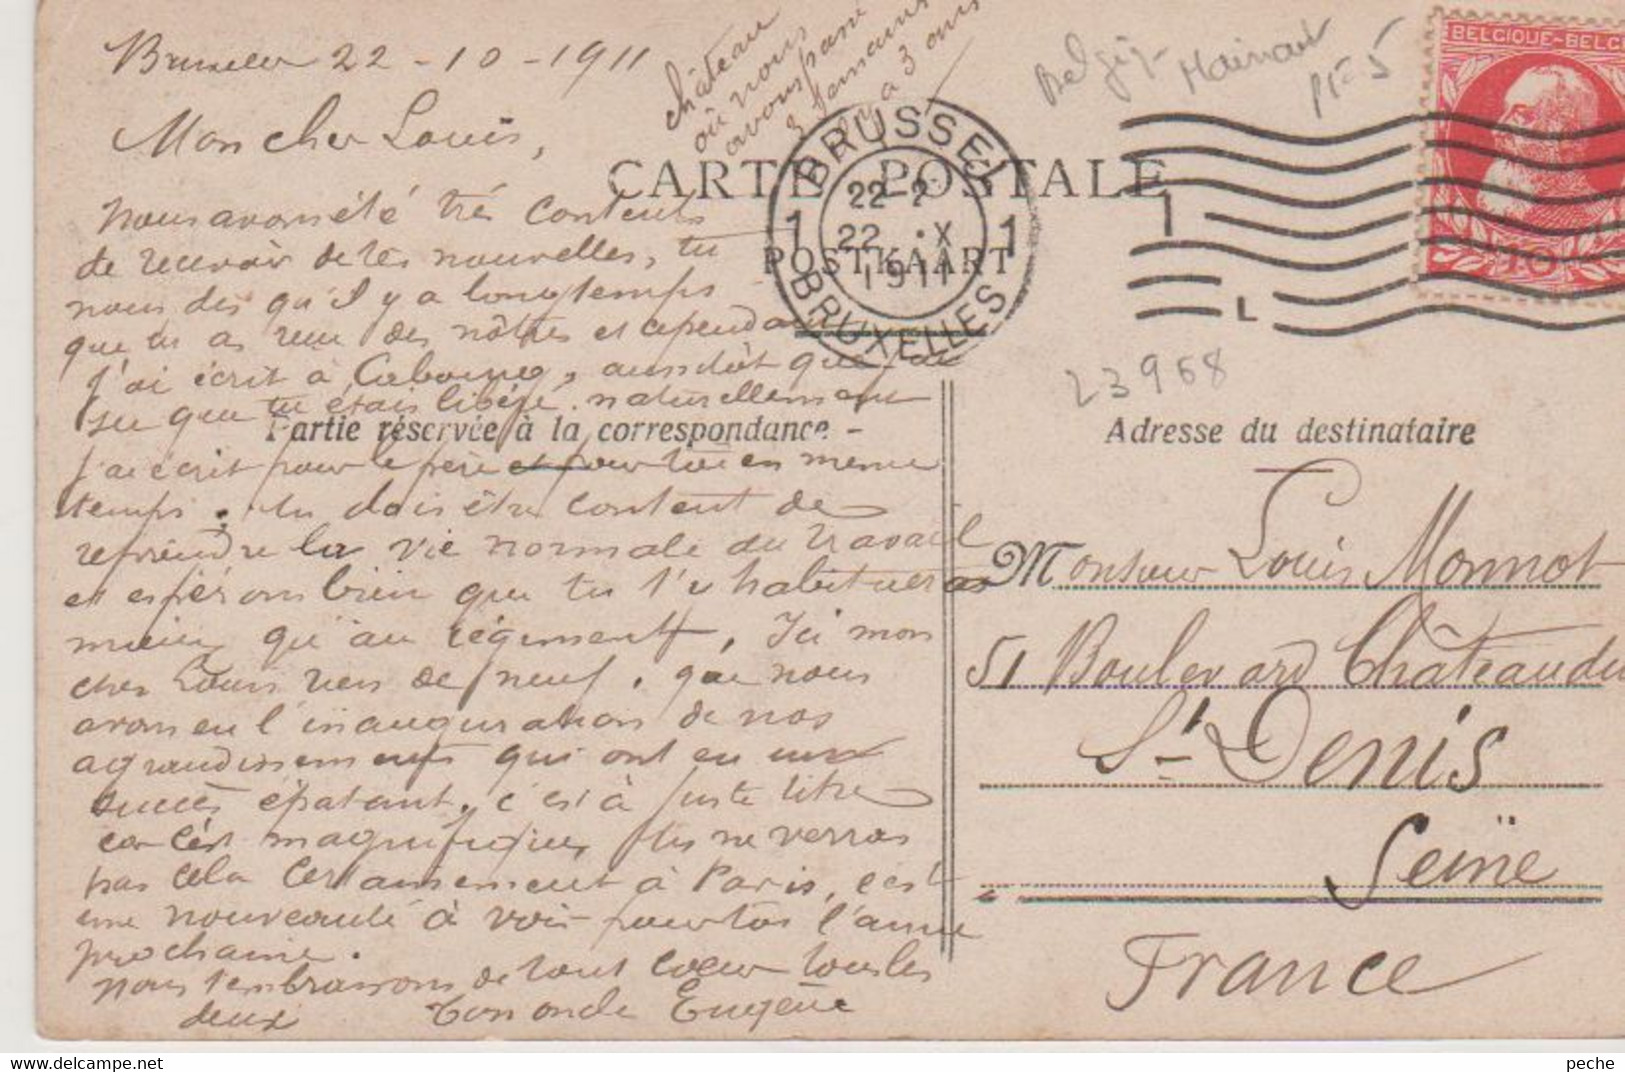 Bruxelles 22 - 10 - 1911
château
où nous
avons passé
3 semaines
il y a 3 ans
Belgiq-
Hainaut
pt-5
BELGIQUE-BELG
10
Mon cher Louis,
CARTE POSTALE
POSTKAART
BRUSSEL
1 1
22-2
22 .X
1911
BRUXELLES
1
L
nous avons été très contents
de recevoir de tes nouvelles, tu
nous dis qu'il y a longtemps
que tu as reçu des nôtres et cependant
j'ai écrit à Cabourg, aussitôt que j'ai
su que tu étais libéré. naturellement
Partie réservée à la correspondance -
j'ai écrit pour le père et pour toi en même
temps. tu dois être content de
reprendre la vie normale du travail
et espérons bien que tu t'y habitueras
mieux qu'au régiment, Ici mon
cher Louis rien de neuf, que nous
avons eu l'inauguration de nos
agrandissements qui ont eu un
succès épatant, c'est à juste titre
car c'est magnifique, tu ne verras
pas cela certainement à Paris, c'est
une nouveauté à voir pour toi l'année
prochaine.
nous t'embrassons de tout coeur tous les
deux Ton oncle Eugène
23968
Adresse du destinataire
Monsieur Louis Monnot
51 Boulevard Châteaudun
St-Denis
Seine
France
peche